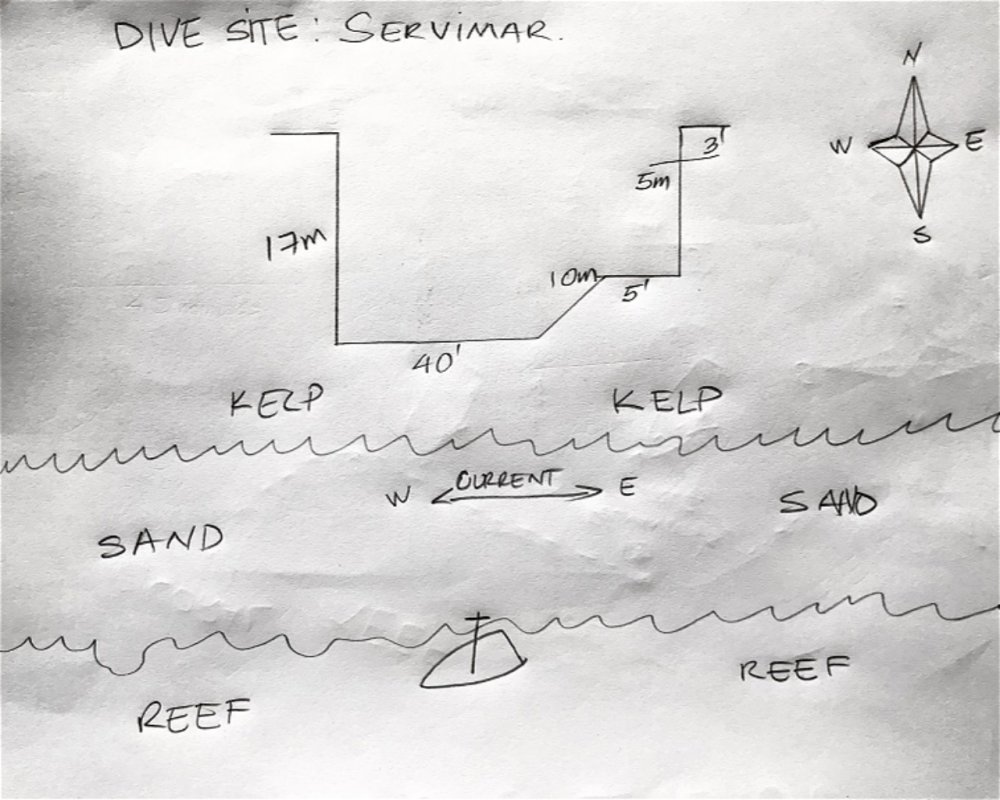 DIVE SITE: SERVIMAR.
N
W E
S
3'
5m
17m
10m
5'
40'
KELP KELP
W CURRENT E
SAND SAND
REEF REEF